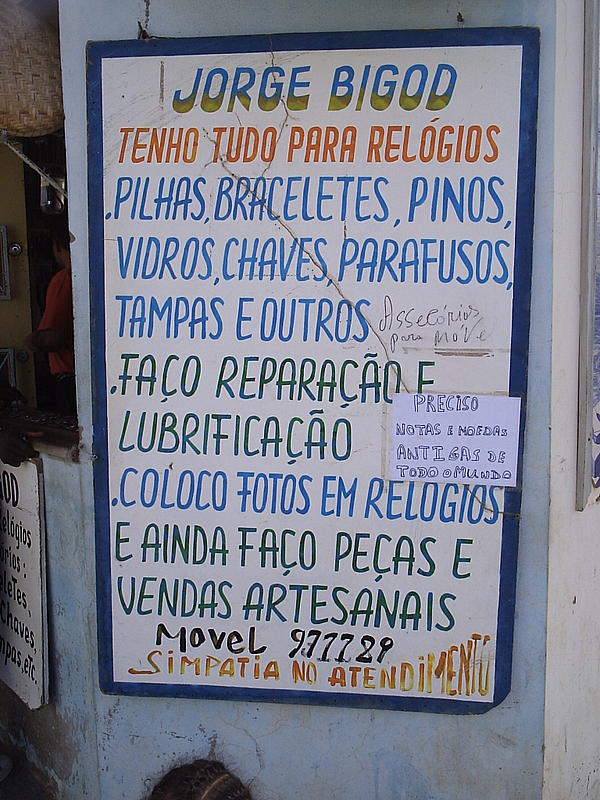 JORGE BIGOD
TENHO TUDO PARA RELÓGIOS
.PILHAS, BRACELETES, PINOS,
VIDROS, CHAVES, PARAFUSOS,
TAMPAS E OUTROS
Asselórios
para móvel
.FAÇO REPARAÇÃO E
LUBRIFICAÇÃO
PRECISO
NOTAS E MOEDAS
ANTIGAS DE
TODO O MUNDO
.COLOCO FOTOS EM RELOGIOS
E AINDA FAÇO PEÇAS E
VENDAS ARTESANAIS
MOVEL 977729
SIMPATIA NO ATENDIMENTO
GOD
elógios
letes.
Chaves,
mpas, etc.